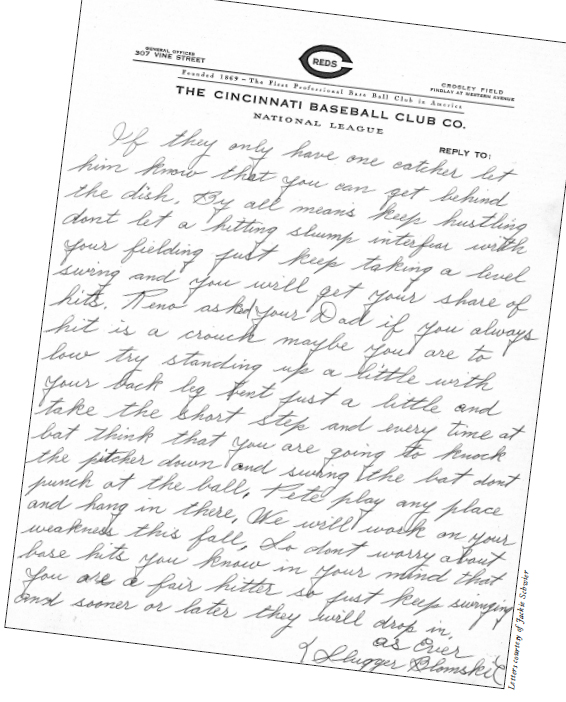 GENERAL OFFICES
307 VINE STREET
REDS
CROSLEY FIELD
FINDLAY AT WESTERN AVENUE
Founded 1869 – The First Professional Base Ball Club in America
THE CINCINNATI BASEBALL CLUB CO.
NATIONAL LEAGUE
REPLY TO:
If they only have one catcher let
him know that you can get behind
the dish. By all means keep hustling
dont let a hitting slump interfear with
your fielding just keep taking a level
swing and you will get your share of
hits. Reno asked your Dad if you always
hit is a crouch maybe you are to
low try standing up a little with
your back leg bent just a little and
take the short step and every time at
bat think that you are going to knock
the pitcher down and swing the bat dont
punch at the ball. Pete play any place
and hang in there. We will work on your
weakness this fall. So dont worry about
base hits you know in your mind that
you are a fair hitter so just keep swinging
and sooner or later they will drop in.
as Ever
Slugger Blomski
Letters courtesy of Jackie Schwier